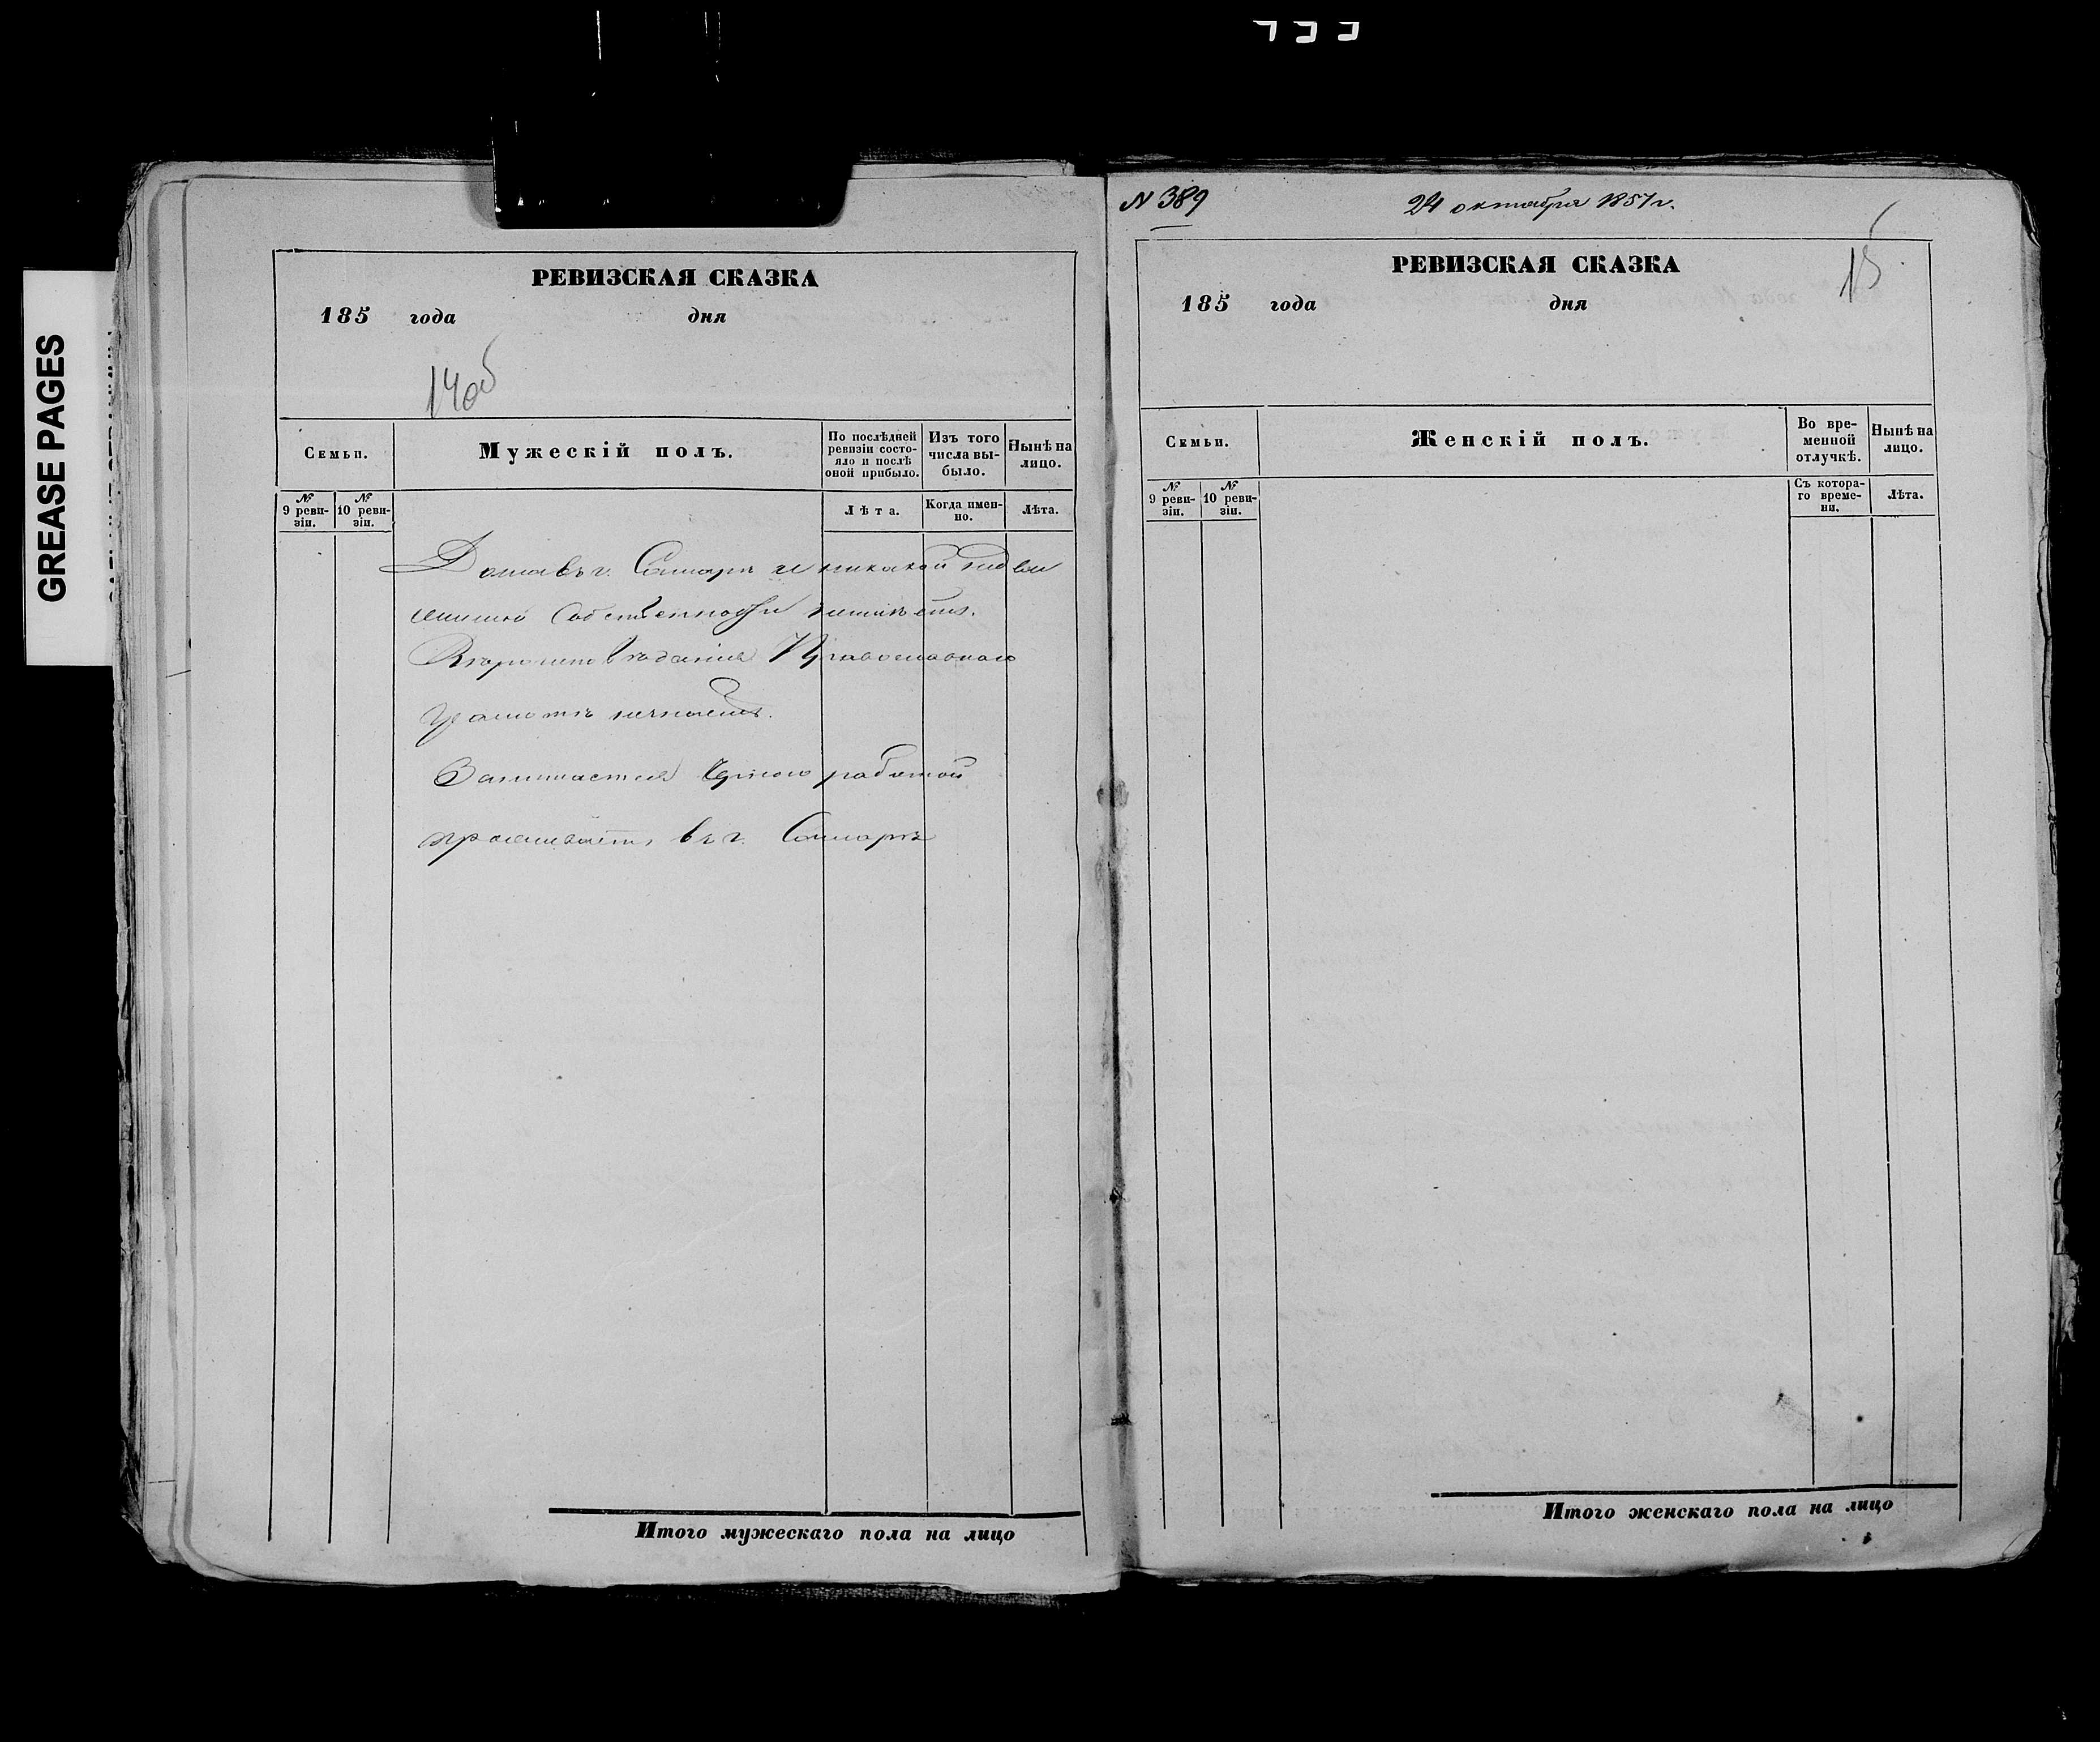 GREASE PAGES
РЕВИЗСКАЯ СКАЗКА
185 года дня
14об
Семьи.
Мужескій полъ.
По послѣдней ревизіи состояло и послѣ оной прибыло.
Изъ того числа выбыло.
Нынѣ на лицо.
№ 9 ревизіи.
№ 10 ревизіи.
Лѣта.
Когда именно.
Лѣта.
Дома въ г. Самарѣ и никакой недви
жимой собственности неимѣетъ.
Вѣроисповѣданія Православнаго
грамотѣ незнаетъ.
Занимается черною работой
проживаетъ въ г. Самарѣ
Итого мужескаго пола на лицо
N 389
24 октября 1857 г.
РЕВИЗСКАЯ СКАЗКА
15
185 года дня
Семьи.
Женскій полъ.
Во временной отлучкѣ.
Нынѣ на лицо.
№ 9 ревизіи.
№ 10 ревизіи.
Съ котораго времени.
Лѣта.
Итого женскаго пола на лицо